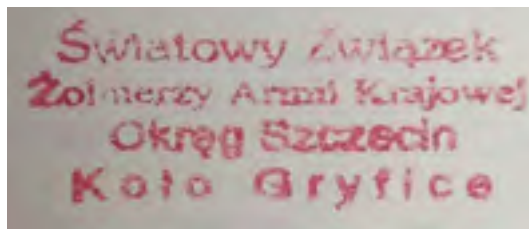 Światowy Związek
Żołnierzy Armii Krajowej
Okręg Szczecin
Koło Gryfice